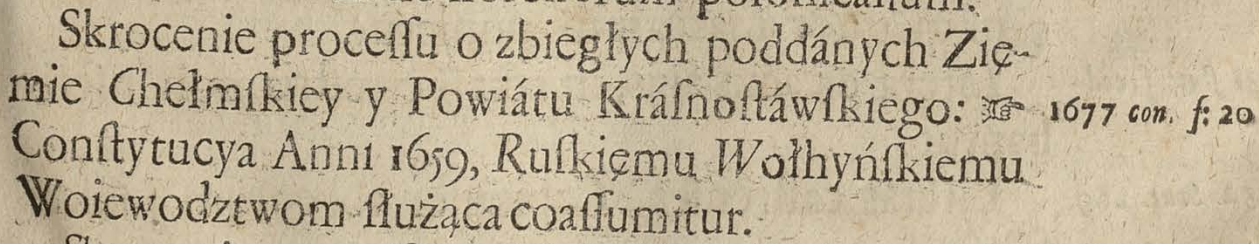 Skrocenie proceſſu o zbiegłych poddánych Zię-
mie Chełmſkiey y Powiátu Kráſnoſtáwſkiego: ☞ 1677 con. f: 20
Conſtytucya Anni 1659, Ruſkięmu Wołhyńſkiemu
Woiewodztwom ſłużąca coaſſumitur.